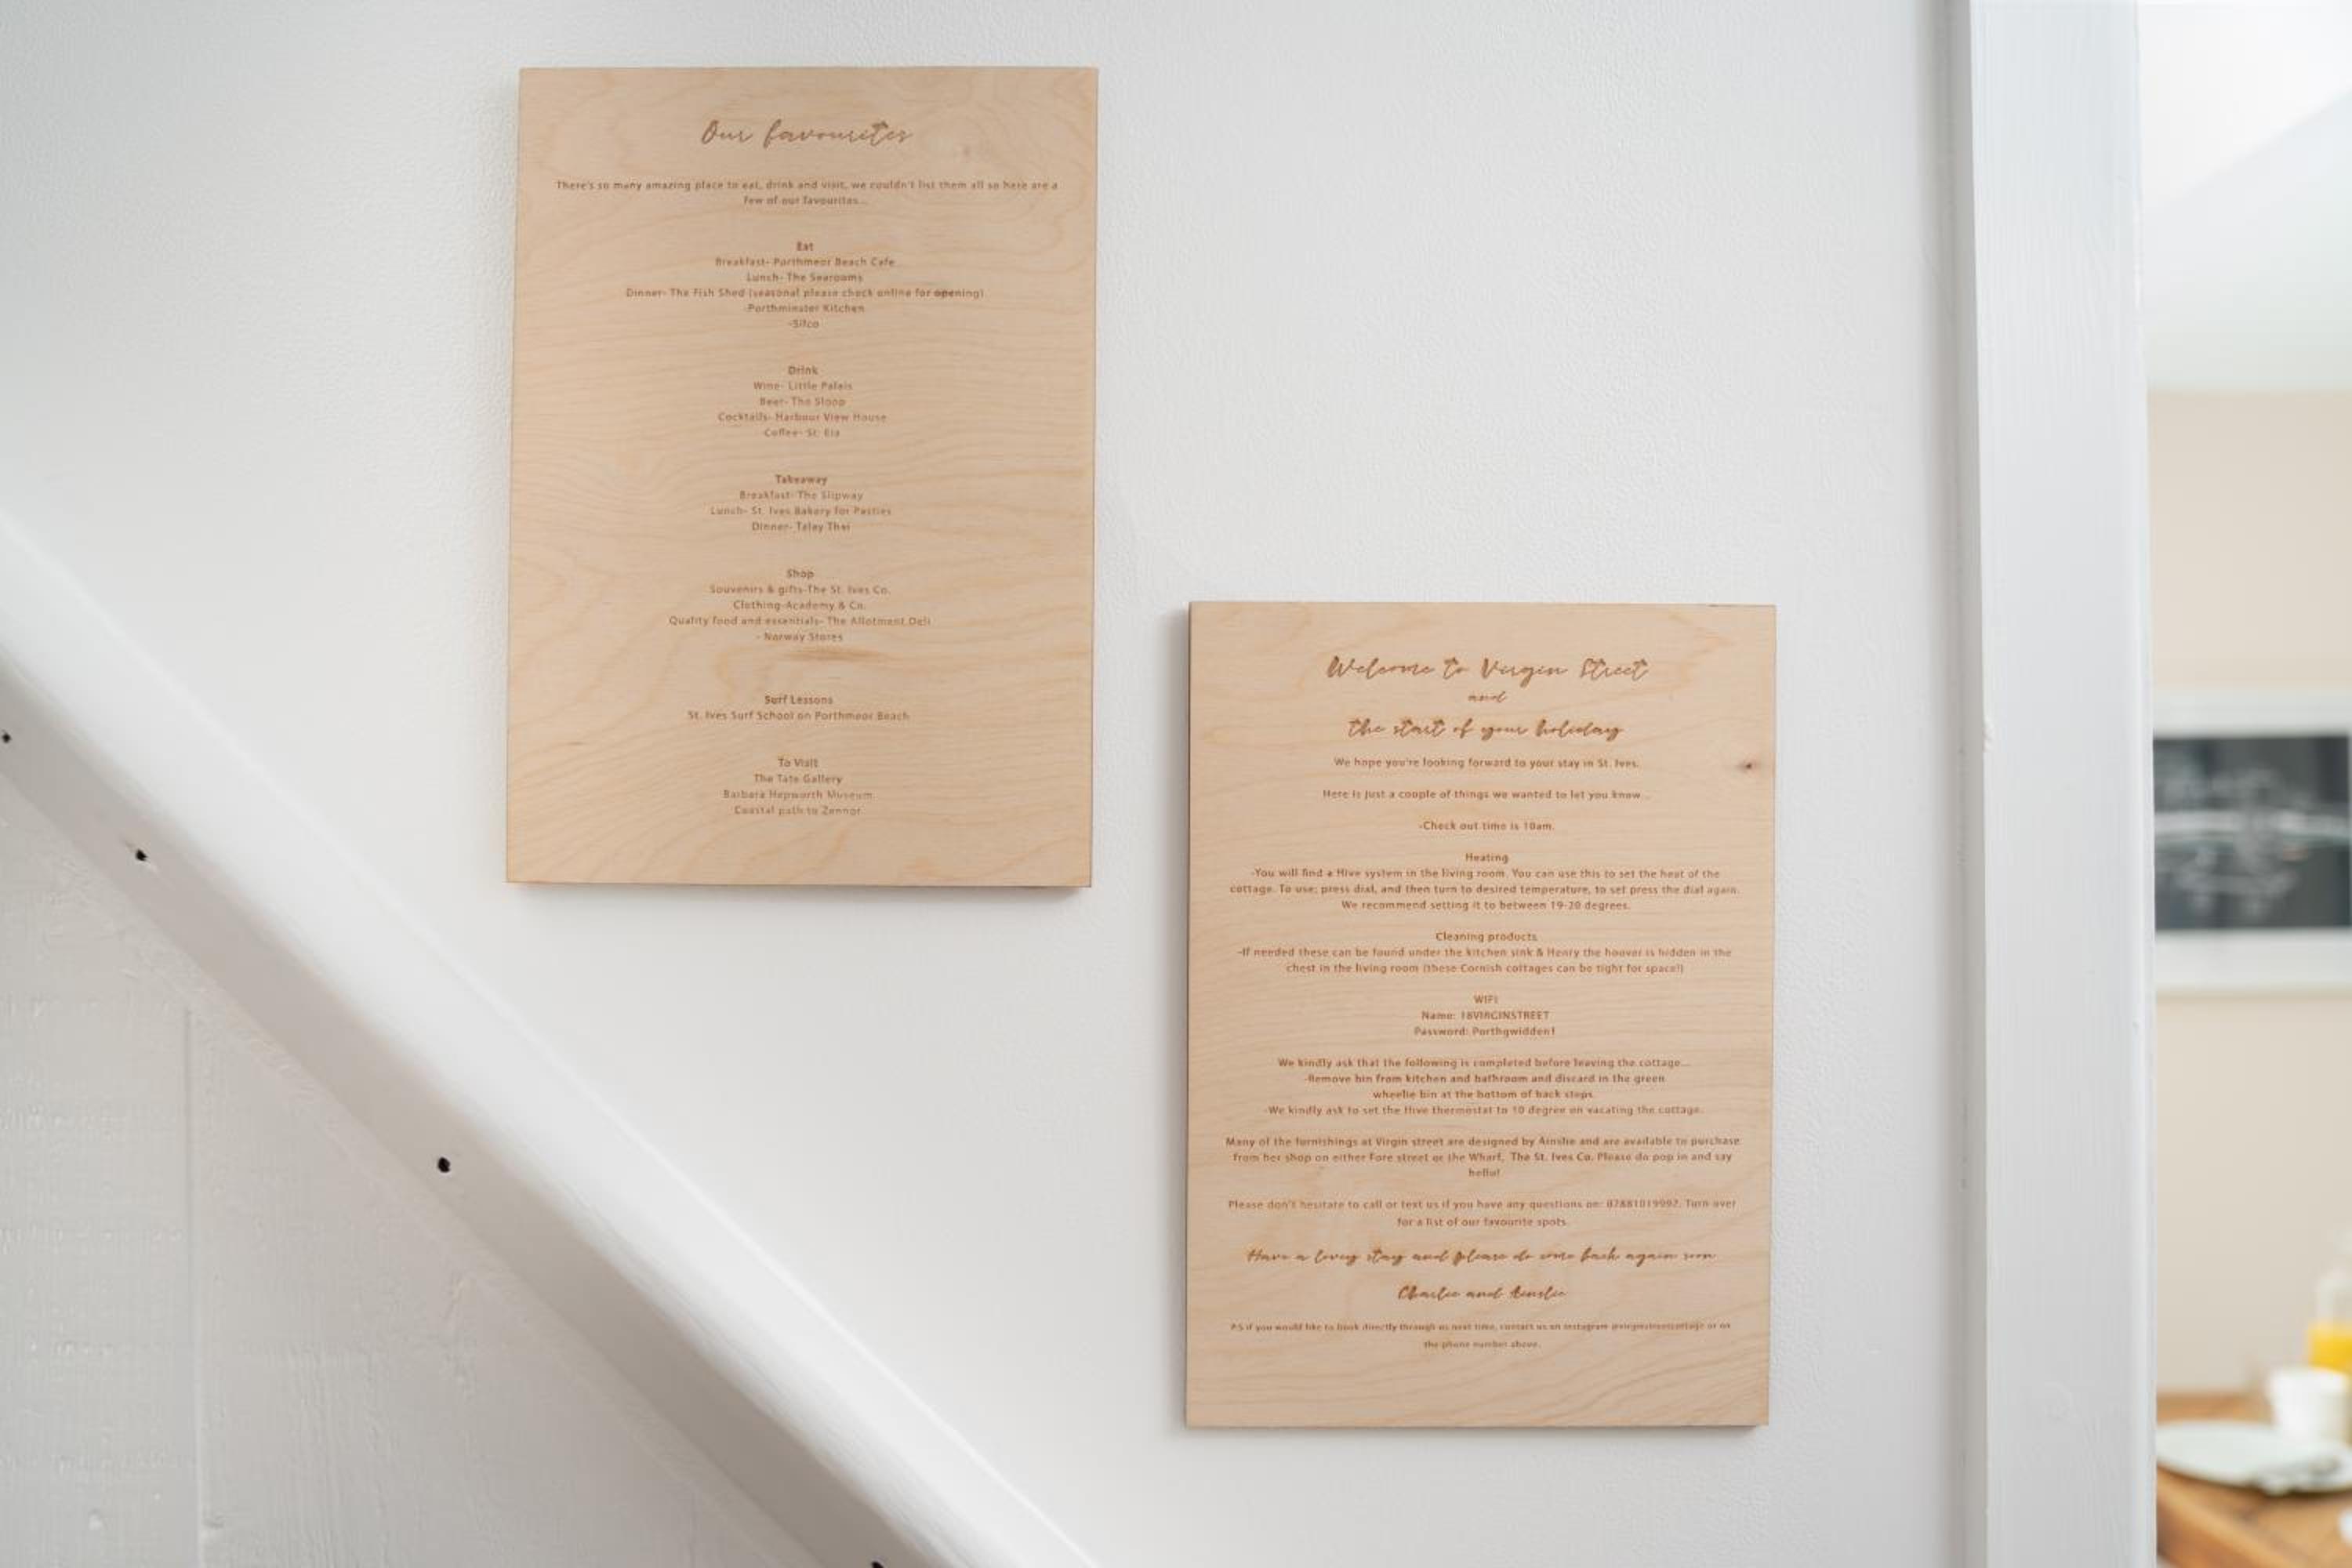 Our favourites
There's so many amazing place to eat, drink and visit, we couldn't list them all so here are a
few of our favourites...
Eat
Breakfast- Porthmeor Beach Cafe
Lunch- The Searooms
Dinner- The Fish Shed (seasonal please check online for opening)
-Porthminster Kitchen
-Silco
Drink
Wine- Little Palais
Beer- The Sloop
Cocktails- Harbour View House
Coffee- St. Eia
Takeaway
Breakfast- The Slipway
Lunch- St. Ives Bakery for Pasties
Dinner- Talay Thai
Shop
Souvenirs & gifts-The St. Ives Co.
Clothing-Academy & Co.
Quality food and essentials- The Allotment Deli
- Norway Stores
Surf Lessons
St. Ives Surf School on Porthmeor Beach
To Visit
The Tate Gallery
Barbara Hepworth Museum
Coastal path to Zennor
Welcome to Virgin Street
and
the start of your holiday
We hope you're looking forward to your stay in St. Ives.
Here is just a couple of things we wanted to let you know...
-Check out time is 10am.
Heating
-You will find a Hive system in the living room. You can use this to set the heat of the
cottage. To use; press dial, and then turn to desired temperature, to set press the dial again.
We recommend setting it to between 19-20 degrees.
Cleaning products
-If needed these can be found under the kitchen sink & Henry the hoover is hidden in the
chest in the living room (these Cornish cottages can be tight for space!)
WIFI
Name: 18VIRGINSTREET
Password: Porthgwidden1
We kindly ask that the following is completed before leaving the cottage...
-Remove bin from kitchen and bathroom and discard in the green
wheelie bin at the bottom of back steps
-We kindly ask to set the Hive thermostat to 10 degree on vacating the cottage.
Many of the furnishings at Virgin street are designed by Ainslie and are available to purchase
from her shop on either Fore street or the Wharf, The St. Ives Co. Please do pop in and say
hello!
Please don't hesitate to call or text us if you have any questions on: 07881019992. Turn over
for a list of our favourite spots.
Have a lovey stay and please do come back again soon
Charlie and Ainslie
P.S if you would like to book directly through us next time, contact us on instagram @virginstreetcottage or on
the phone number above.